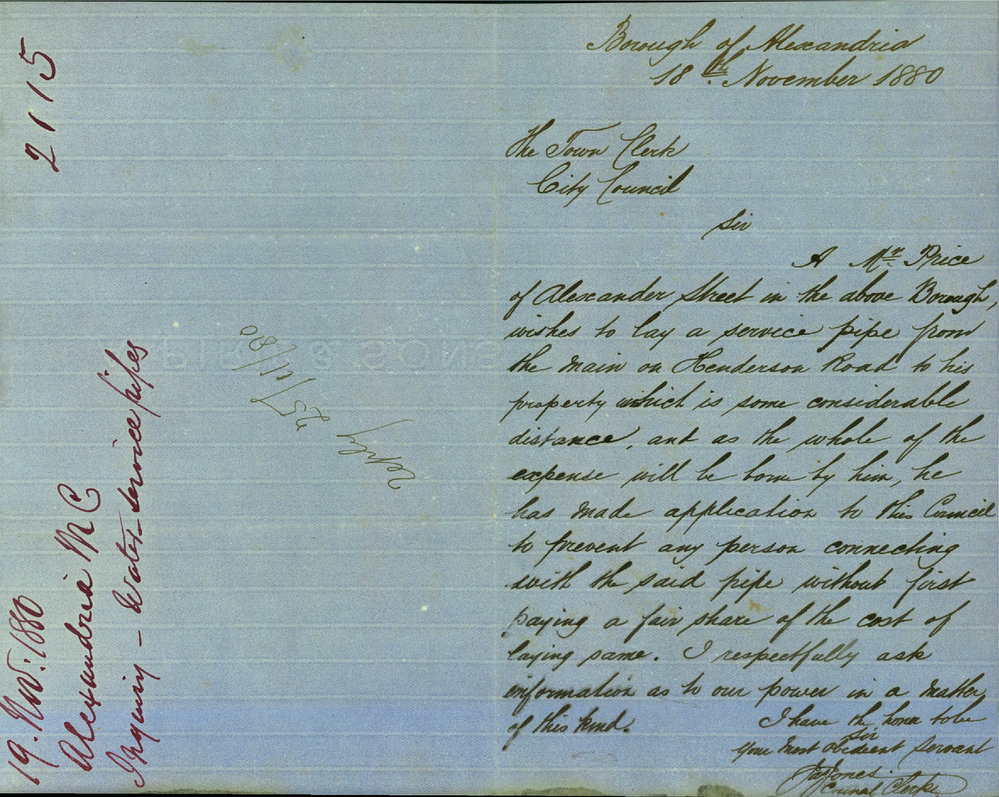 2115
19. Nov: 1880
Alexandria M C
Inquiry - Water service pipes
reply 25/11/80
Borough of Alexandria
18th November 1880
The Town Clerk
City Council
Sir
A Mr. Price
of Alexander Street in the above Borough,
wishes to lay a service pipe from
the main on Henderson Road to his
property which is some considerable
distance, and as the whole of the
expense will be born by him, he
has made application to this Council
to prevent any person connecting
with the said pipe without first
paying a fair share of the cost of
laying same. I respectfully ask
information as to our power in a matter
of this kind.
I have the honor to be
Sir
Your Most Obedient Servant
Jones
Council Clerk